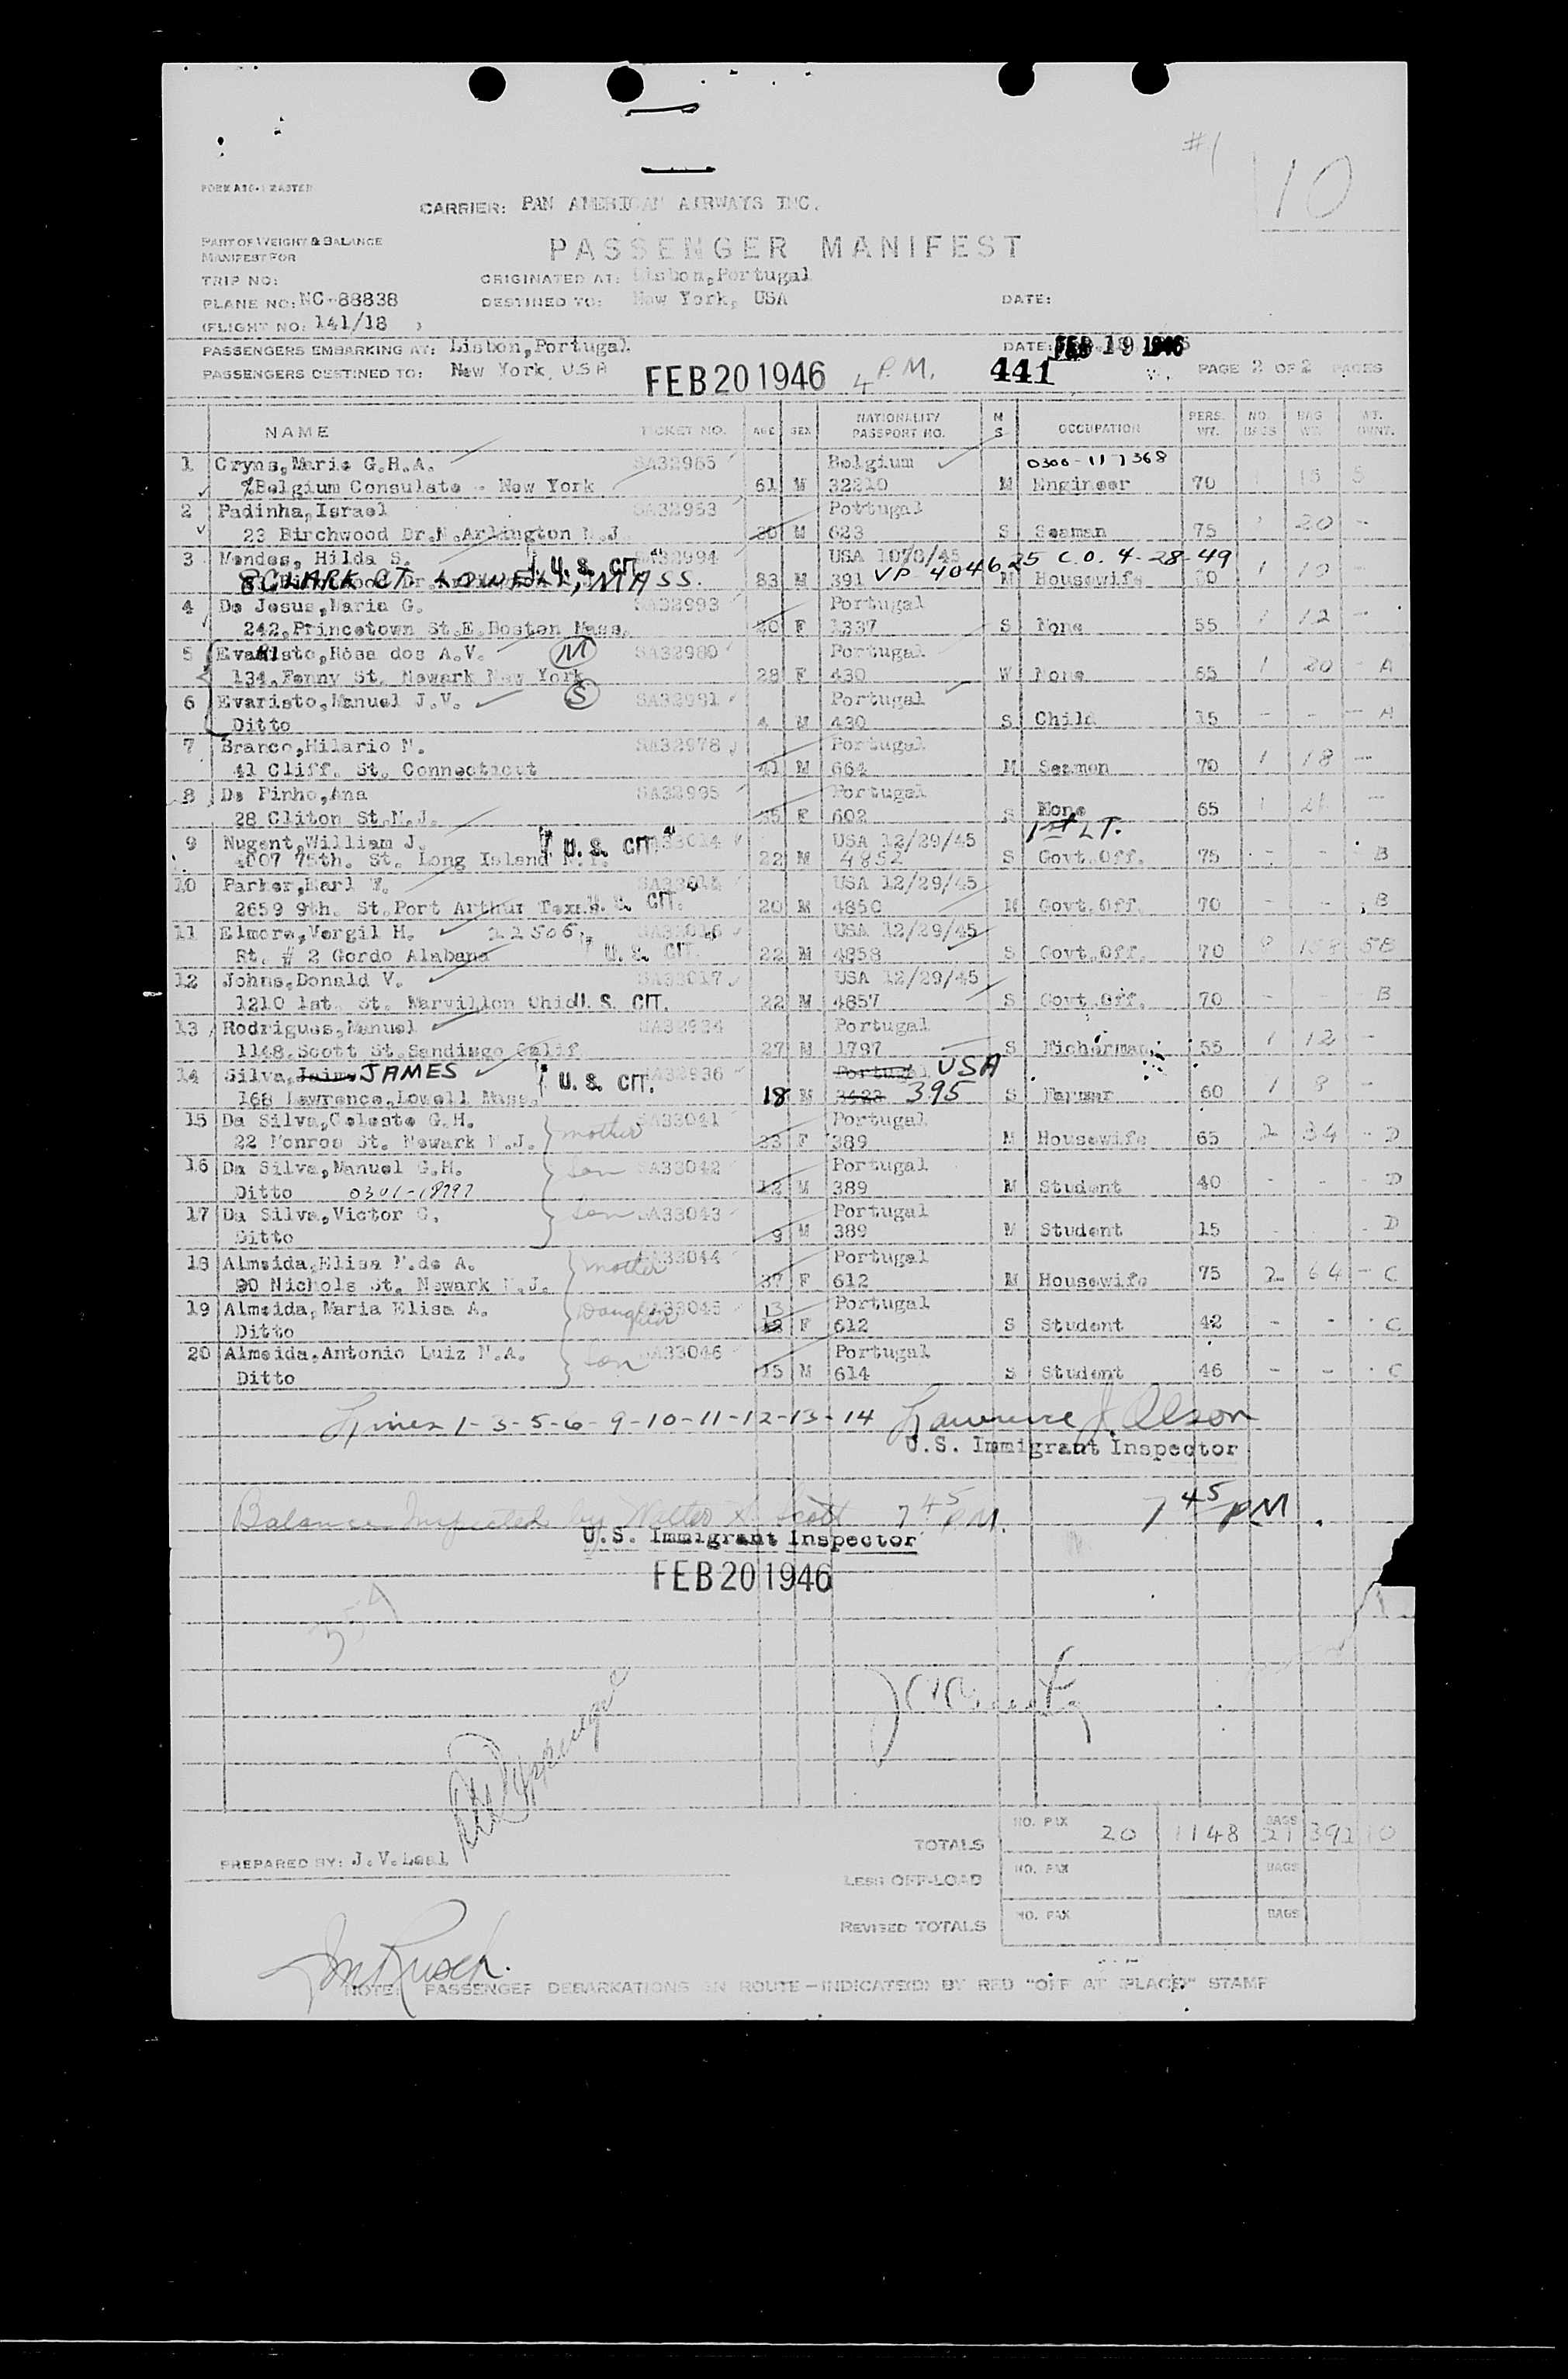 #1
10
FORM A10-1 EASTER
CARRIER: PAN AMERICAN AIRWAYS INC.
PART OF WEIGHT & BALANCE
MANIFEST FOR
PASSENGER MANIFEST
TRIP NO:
ORIGINATED AT: Lisbon,Portugal
PLANE NO: NC-88838
DESTINED TO: New York, USA
DATE:
(FLIGHT NO: 141/18 )
PASSENGERS EMBARKING AT: Lisbon,Portugal
DATE: FEB 19 1946
PASSENGERS DESTINED TO: New York, USA
FEB 20 1946 4 P.M. 441 PAGE 2 OF 2 PAGES
NAME TICKET NO. AGE SEX NATIONALITY PASSPORT NO. M S OCCUPATION PERS. WT. NO. BAGS BAG WT.
1 Cryns,Marie G.H.A. SA32965 Belgium 0300-117368
%Belgium Consulate - New York 61 M 32210 M Engineer 70 15 5
2 Padinha,Israel SA32963 Pottugal
23 Birchwood Dr.N.Arlington N.J 30 M 623 S Seaman 75 1 20 -
3 Mendes, Hilda S. U.S. CIT. SA32994 USA 1070/45
8 CLARK CT. LOWELL, MASS. 33 M 391 VP 404625 C.O. 4-28-49 M Housewife 60 1 10 -
4 De Jesus,Maria G. SA32993 Portugal
242,Princetown St.E.Boston Mass. 20 F 1337 S None 55 1 12 -
5 Evaristo,Rosa dos A.V. M SA32980 Portugal
134,Fenny St. Newark New York 28 F 430 W None 65 1 20 - A
6 Evaristo,Manuel J.V. S SA32981 Portugal
Ditto 4 M 430 S Child 15 - - - A
7 Branco,Hilario N. SA32978 Portugal
41 Cliff. St. Connecticut 41 M 664 M Seamen 70 1 18 -
8 De Pinho,Ana SA32995 Portugal
28 Cliton St.N.J. 35 F 602 S None 65 1 21 -
1st LT.
9 Nugent,William J. U.S. CIT. SA33014 USA 12/29/45
4007 75th. St. Long Island N.Y. 22 M 4852 S Govt.Off. 75 - - B
10 Parker,Earl W. USA 12/29/45
2659 9th. St.Port Arthur Texas U.S. CIT. 20 M 4850 M Govt.Off. 70 - - B
11 Elmore,Vergil H. 22506 SA33016 USA 12/29/45
Rt. # 2 Gordo Alabama U.S. CIT. 22 M 4858 S Govt.Off. 70 5B
12 Johns,Donald V. SA33017 USA 12/29/45
1210 1st. St. Marvillon Ohio U.S. CIT. 22 M 4857 S Govt.Off. 70 - - B
13 Rodrigues,Manuel SA32934 Portugal
1148,Scott St.Sandiego Calif 27 M 1797 S Ficherman 55 1 12 -
14 Silva,Jaime JAMES U.S. CIT. SA32936 Portugal USA
168 Lawrence,Lowell Mass. 18 M 395 S Farmar 60 1 8 -
15 Da Silva,Celeste G.H. mother SA33041 Portugal
22 Monroe St. Newark N.J. 33 F 389 M Housewife 65 2 34 - D
16 Da Silva,Manuel G.H. Son SA33042 Portugal
Ditto 0301-18797 12 M 389 M Student 40 - - - D
17 Da Silva,Victor G. Son SA33043 Portugal
Ditto 9 M 389 M Student 15 - D
18 Almeida,Elisa N.de A. mother SA33044 Portugal
90 Nichols St. Newark N.J. 37 F 612 M Housewife 75 2 64 - C
19 Almeida,Maria Elisa A. Daughter SA33045 13 Portugal
Ditto 12 F 612 S Student 42 - - - C
20 Almeida,Antonio Luiz N.A. Son SA33046 Portugal
Ditto 15 M 614 S Student 46 - - - C
Lines 1-3-5-6-9-10-11-12-13-14 Lawrence J. Olson
U.S. Immigrant Inspector
Balance Inspected by Walter H. Scott 7 45 P.M. 7 45 PM.
U.S. Immigrant Inspector
FEB 20 1946
354
TOTALS NO. PAX 20 1148 BAGS 21 392 10
PREPARED BY: J.V.Leal
LESS OFF-LOAD NO. PAX BAGS
REVISED TOTALS NO. PAX BAGS
NOTE: PASSENGER DEBARKATIONS EN ROUTE—INDICATE(D) BY RED "OFF AT (PLACE)" STAMP